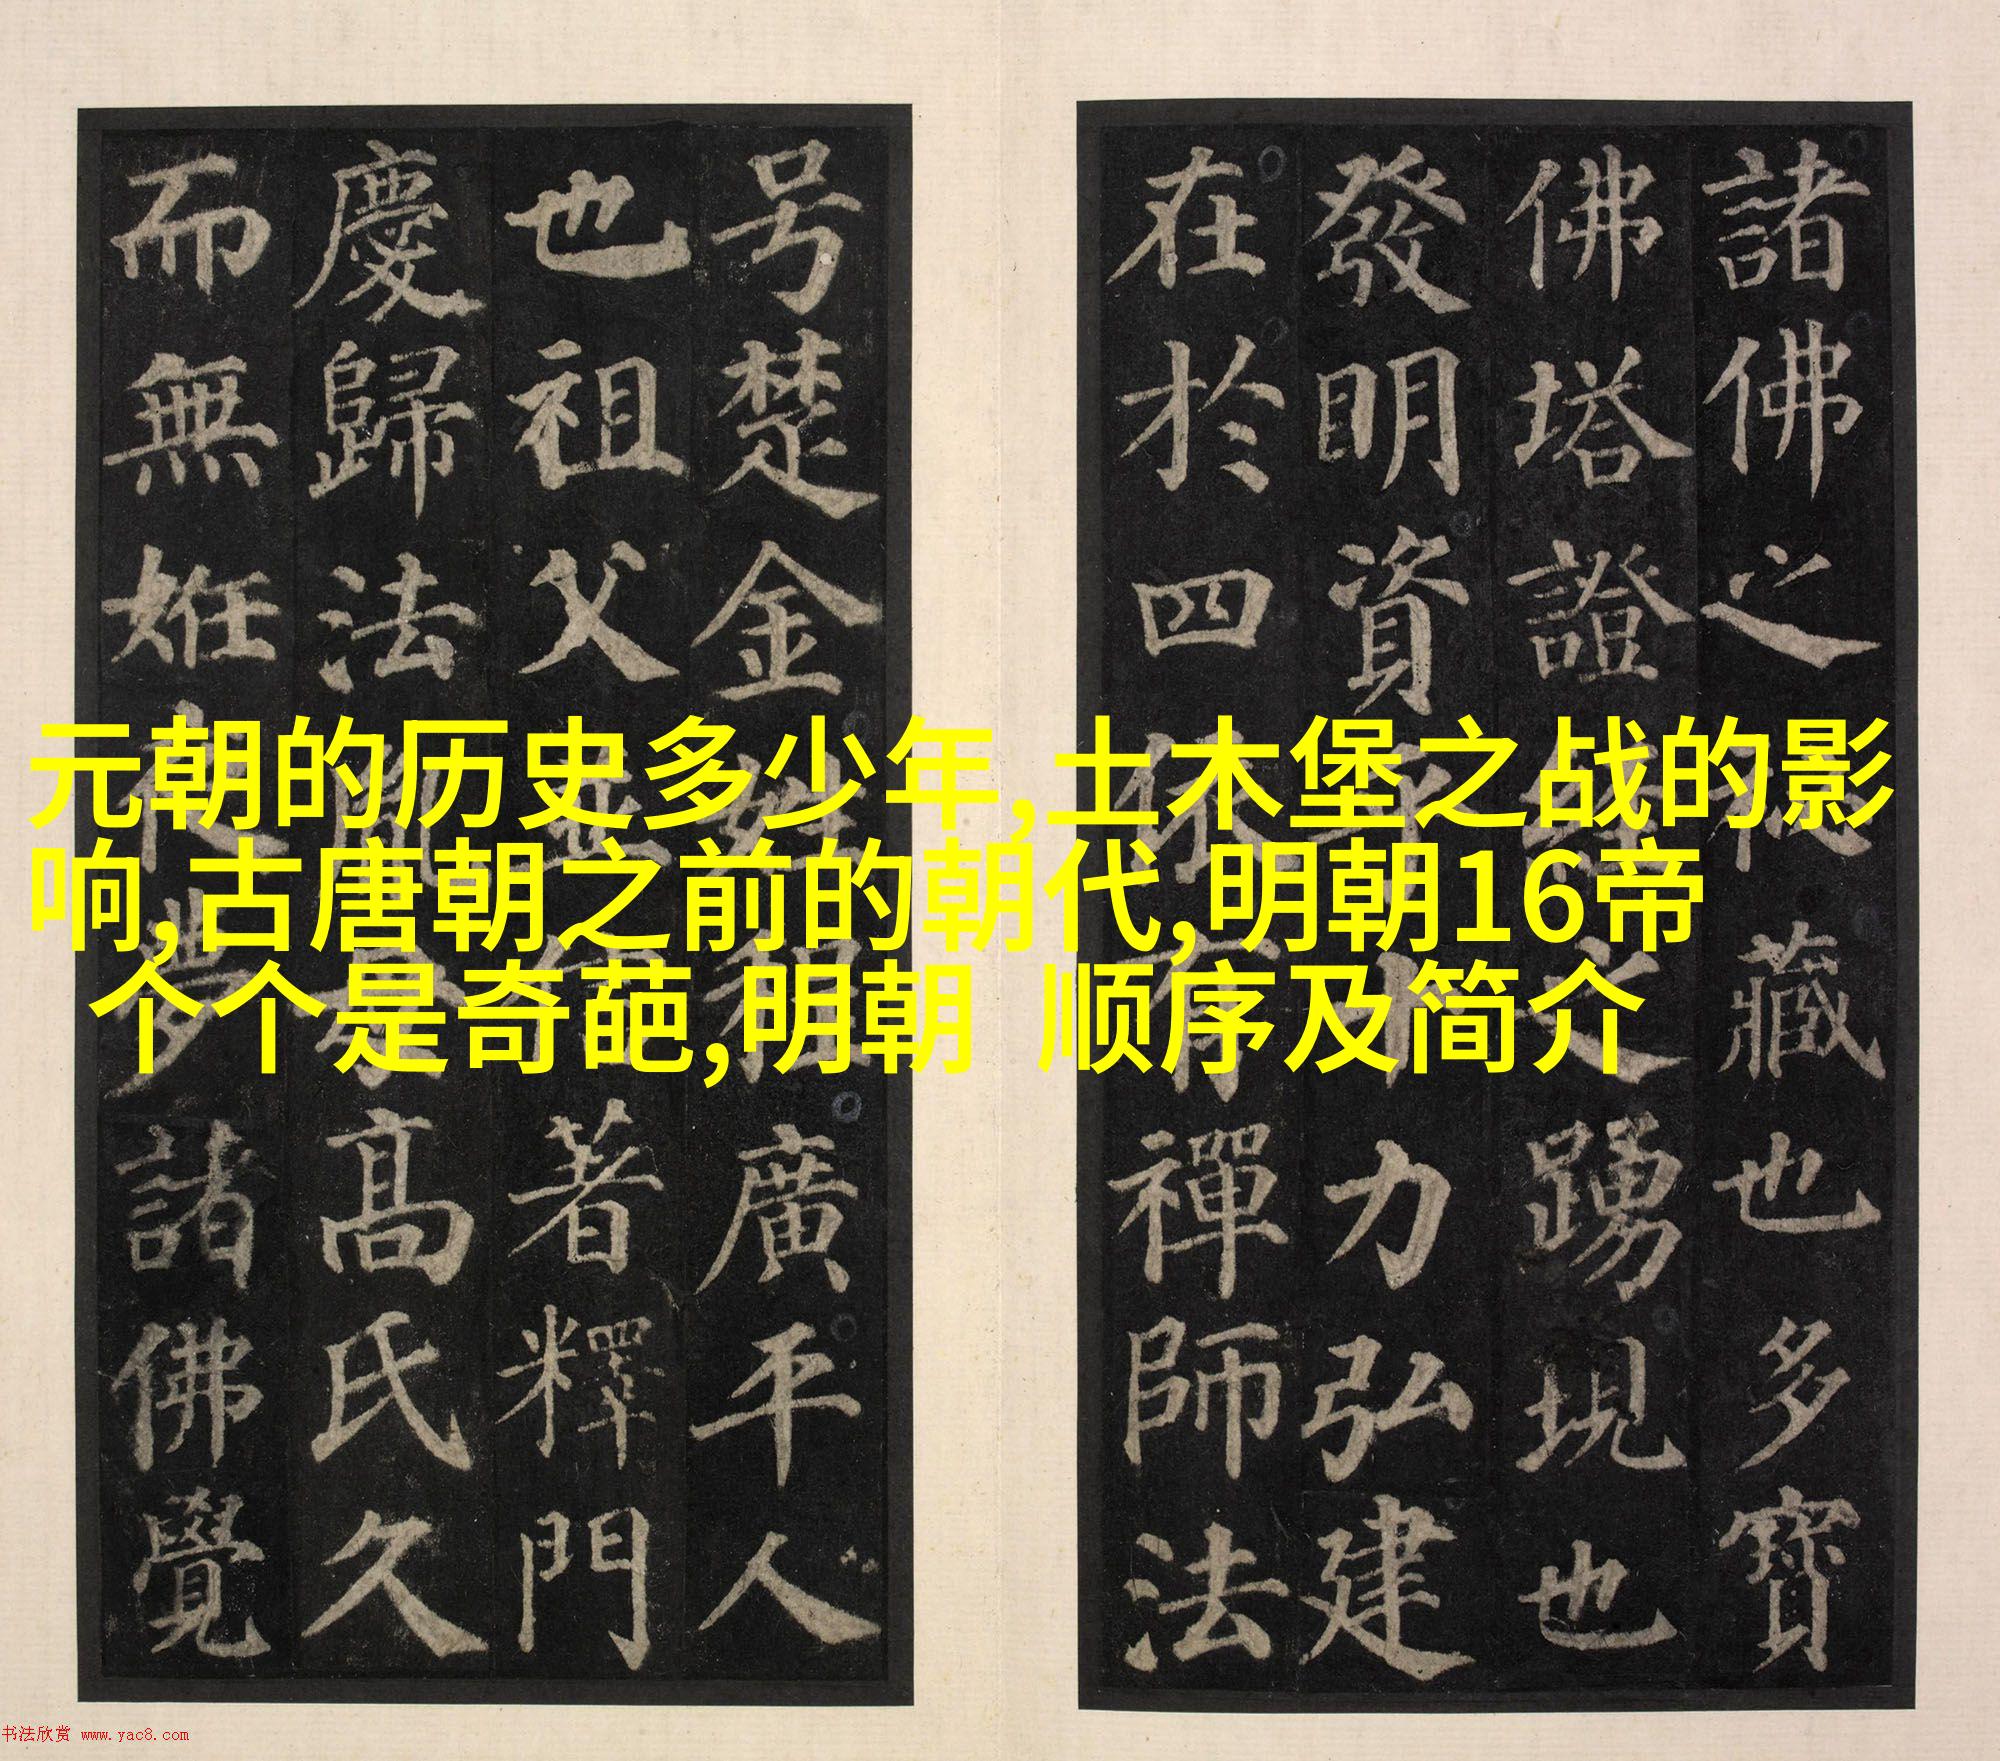 諸佛之秘藏也多寶
佛塔證經之踴現也
發明資乎十力弘建
在於四依有禪師法
号楚金姓程廣平人
也祖父並信著釋門
慶歸法胤母高氏久
而無姙夜夢諸佛覺
元朝的历史多少年,土木堡之战的影
响,古唐朝之前的朝代,明朝16帝
个个是奇葩,明朝 顺序及简介
书法欣赏 www.yac8.com